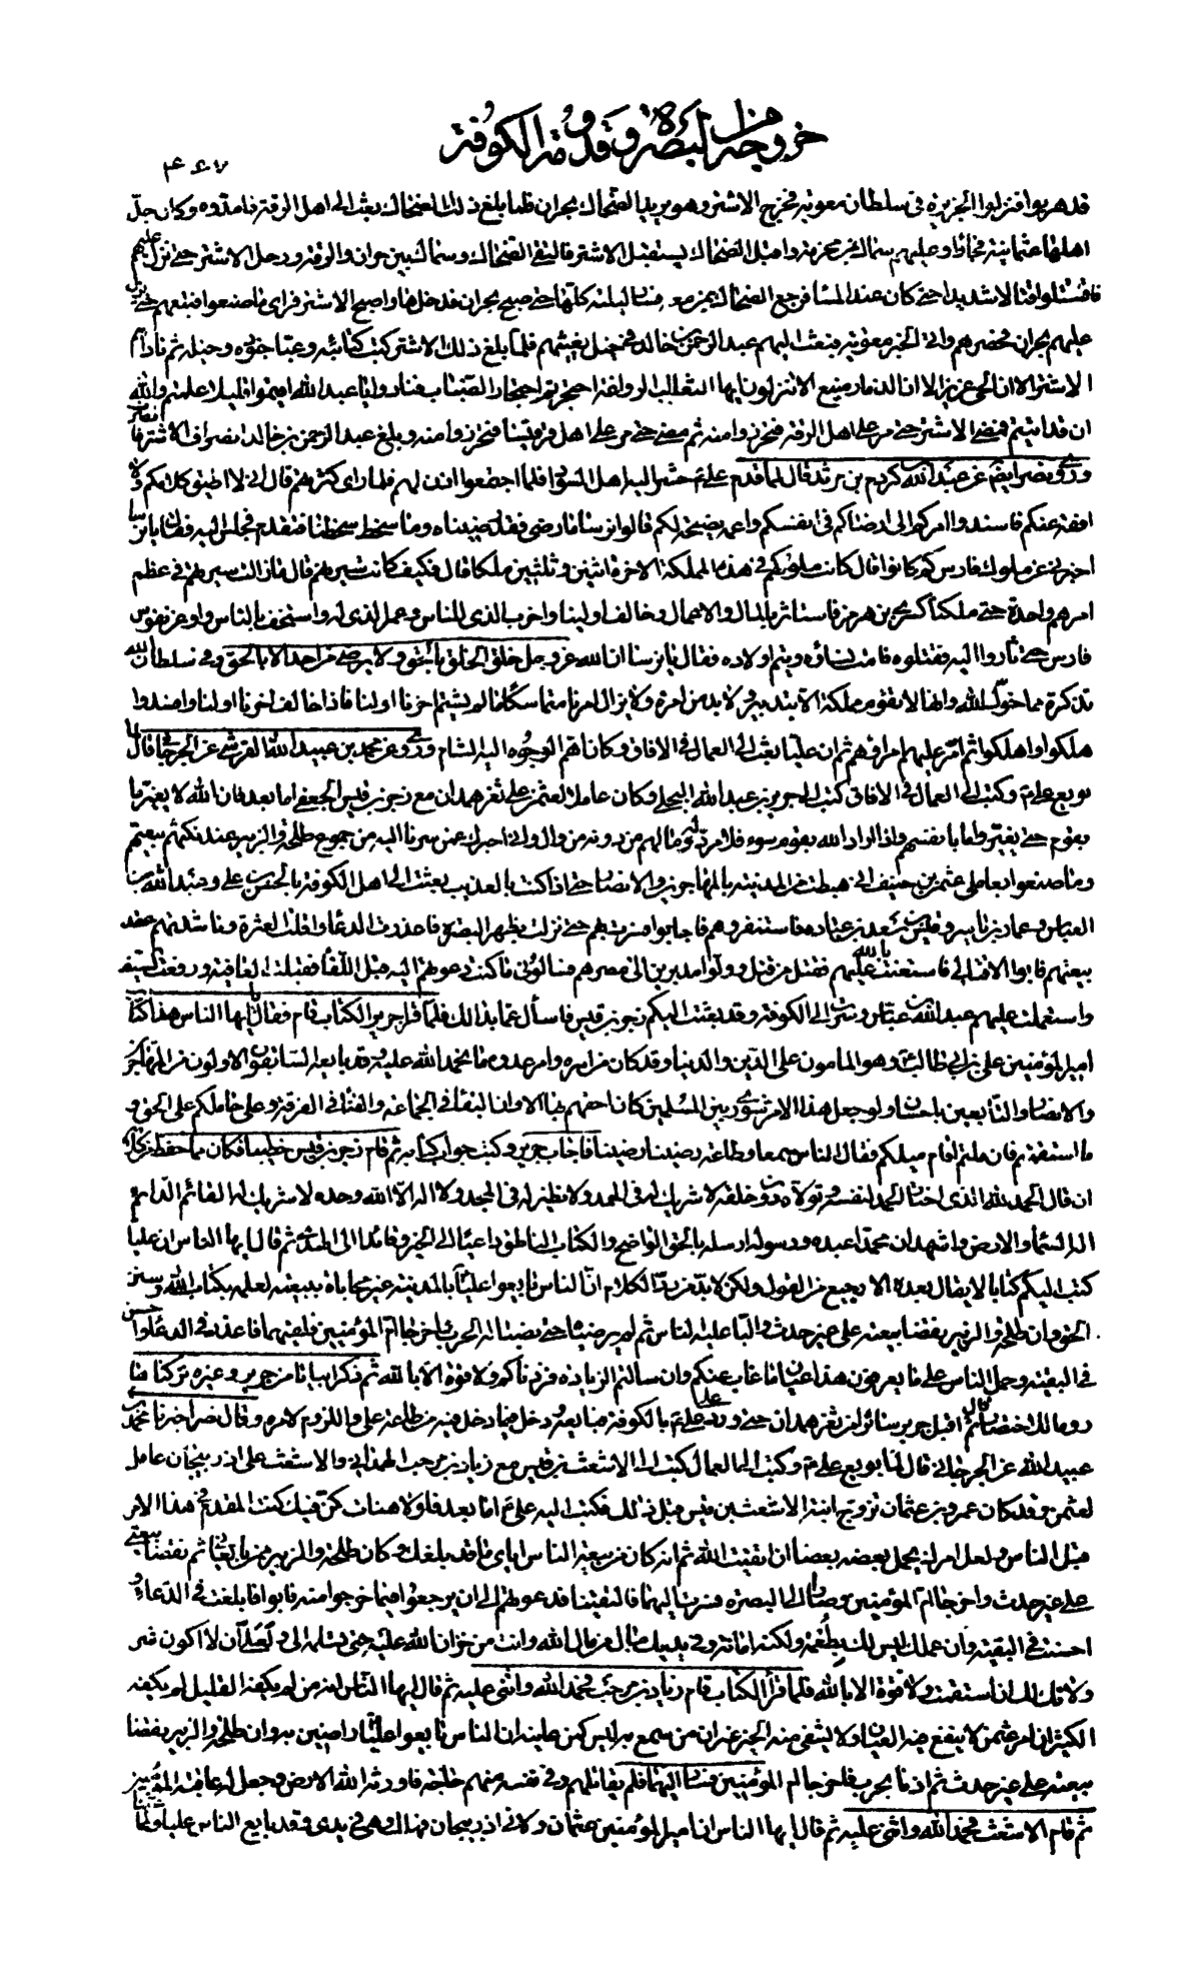 خروجه من البصرة وقدومه الكوفة
٤٦٧
قد هربوا فنزلوا الجزيرة في سلطان معوية فخرج الاشتر وهو يريد الضحاك بحران فلما بلغ ذلك الضحاك بعث الى اهل الرقة فامدوه وكان جل
اهلها عثمانية فجاؤا وعليهم سماك بن مخرمة واقبل الضحاك يستقبل الاشتر فالتقى الضحاك وسماك بين حران والرقة ورحل الاشتر حتى نزل عليهم
فاقتتلوا قتالا شديدا حتى كان عند المسا فرجع الضحاك بمن معه فسار ليلته كلها حتى صبح بحران فدخلها واصبح الاشتر فراى ما صنعوا فتبعهم حتى نزل
عليهم بحران فحصرهم واتى الخبر معوية فبعث اليهم عبد الرحمن بن خالد في خيل يغيثهم فلما بلغ ذلك الاشتر كتب كتائبه وعبا جنوده وخيله ثم ناداهم
الاشتر الا ان الحي عزيز الا ان الذمار منيع الا تنزلون ايها الثعالب الرواغة احتجرتم احتجار الضباب فنادوا يا عبد الله اقيموا قليلا علمتم والله
ان قد اتيتم فمضى الاشتر حتى مر على اهل الرقة فتحرزوا منه ثم مضى حتى مر على اهل قرقيسا فتحرزوا منه وبلغ عبد الرحمن بن خالد انصراف الاشتر فانصرف
وروى نصر ايضا عن عبد الله كردم بن مرثد قال لما قدم علي ع حشر اليه اهل السواد فلما اجتمعوا اذن لهم فلما راى كثرتهم قال اني لا اطيق كلامكم ولا
افقه عنكم فاسندوا امركم الى ارضاكم في انفسكم واعمه نصيحة لكم قالوا نرسا ما رضى فقد رضيناه وما سخط سخطنا فتقدم فجلس اليه فقال يا نرسا
اخبرني عن ملوك فارس كم كانوا قال كانت ملوكهم في هذه المملكة الاخرة اثنين وثلثين ملكا قال فكيف كانت سيرتهم قال ما زالت سيرتهم في عظم
امرهم واحدة حتى ملكنا كسرى بن هرمز فاستاثر بالمال والاعمال وخالف اولينا واخرب الذي للناس وعمر الذي له واستخف بالناس واوغر نفوس
فارس حتى ثاروا اليه فقتلوه فامت نساؤه ويتم اولاده فقال يا نرسا ان الله عز وجل خلق الخلق بالحق ولا يرضى من احد الا بالحق وفي سلطان الله
تذكرة مما خول الله وانها لا تقوم مملكة الا بتدبير ولا بد من امرة ولا يزال امرنا متماسكا ما لم يشتم اخرنا اولنا فاذا خالف اخرنا اولنا وافسدوا
هلكوا واهلكوا ثم امر عليهم امراءهم ثم ان عليا بعث الى العمال في الافاق وكان اهم الوجوه اليه الشام وروى عن محمد بن عبيد الله القرشي عن الجرجاني قال لما
بويع علي ع وكتب الى العمال في الافاق كتب الى جرير بن عبد الله البجلي وكان عاملا لعثمن على ثغر همدان مع زحر بن قيس الجعفي اما بعد فان الله لا يغير ما
بقوم حتى يغيروا ما بانفسهم واذا اراد الله بقوم سوء فلا مرد له وما لهم من دونه من وال واني اخبرك عمن سرنا اليه من جموع طلحة والزبير عند نكثهم بيعتهم
وما صنعوا بعاملي عثمن بن حنيف اني هبطت من المدينة بالمهاجرين والانصار حتى اذا كنت بالعذيب بعثت الى اهل الكوفة بالحسن بن علي وعبد الله بن
العباس وعمار بن ياسر وقيس بن سعد بن عباده فاستنفروهم فاجابوا فسرت بهم حتى نزلت بظهر البصرة فاعذرت الدعاء واقلت العثرة وناشدتهم عقد
بيعتهم فابوا الا قتالي فاستعنت بالله عليهم فقتل من قتل وولوا مدبرين الى مصرهم فسالوني ما كنت دعوتهم اليه قبل اللقا فقبلت العافية ورفعت السيف
واستعملت عليهم عبد الله بن عباس وسرت الى الكوفة وقد بعثت اليكم زحر بن قيس فاسأل عما بدا لك فلما قرا جرير الكتاب قام فقال ايها الناس هذا كتاب
امير المؤمنين علي بن ابي طالب ع وهو المامون على الدين والدنيا وقد كان من امره وامر عدوه ما نحمد الله عليه وقد بايعه السابقون الاولون من المهاجرين
والانصار والتابعين باحسان ولو جعل هذا الامر شورى بين المسلمين كان احقهم بها الا وان البقا في الجماعة والفنا في الفرقة وعلي حاملكم على الحق
ما استقمتم فان ملتم اقام ميلكم فقال الناس سمعا وطاعة رضينا رضينا فاجاب جرير وكتب جواب كتابه ثم قام زحر بن قيس خطيبا فكان مما حفظ من كلامه
ان قال الحمد لله الذي اختار الحمد لنفسه وتولاه دون خلقه لا شريك له في الحمد ولا نظير له في المجد ولا اله الا الله وحده لا شريك له القائم الدائم
اله السماء والارض واشهد ان محمدا عبده ورسوله ارسله بالحق الواضح والكتاب الناطق داعيا الى الخير وقائدا الى الهدى ثم قال ايها الناس ان عليا
كتب اليكم كتابا لا يقال بعده الا رجيع من القول ولكن لا بد من رد الكلام ان الناس بايعوا عليا بالمدينة عن غير محاباة ببيعته لعلمه بكتاب الله وسنن
الحق وان طلحة والزبير نقضا بيعته على غير حدث والبا عليه الناس ثم لم يرضيا حتى نصبا له الحرب واخرجا ام المؤمنين فلقيهما فاعذر في الدعاء واحسن
في البقية وحمل الناس على ما يعرفون هذا عيان ما غاب عنكم وان سالتم الزيادة زدناكم ولا قوة الا بالله ثم ذكر ابياتا من جرير وغيره تركنا منا
روما للاختصار قال ثم اقبل جرير سائرا من ثغر همدان حتى ورد على علي ع بالكوفة فبايعه ودخل فيما دخل فيه من طاعة علي واللزوم لامره وقال نصر اخبرنا محمد بن
عبيد الله عن الجرجاني قال لما بويع علي ع وكتب الى العمال كتب الى الاشعث بن قيس مع زياد بن مرحب الهمداني والاشعث على اذربيجان عامل
لعثمن وقد كان عمرو بن عثمان تزوج ابنة الاشعث بن قيس قبل ذلك فكتب اليه علي ع اما بعد فلولا هنات كن فيك كنت المقدم في هذا الامر
قبل الناس ولعل امرك يحمل بعضه بعضا ان اتقيت الله ثم انه كان من بيعة الناس اياي ما قد بلغك وكان طلحة والزبير ممن بايعاني ثم نقضا بيعتي
على غير حدث واخرجا ام المؤمنين وصارا الى البصره فسرت اليهما فالتقينا فدعوتهم الى ان يرجعوا فيما خرجوا منه فابوا فابلغت في الدعاء و
احسنت في البقية وان عملك ليس لك بطعمة ولكنه امانة وفي يديك مال من مال الله وانت من خزان الله عليه حتى تسلمه الي ولعلي ان لا اكون شر
ولاتك لك ان استقمت ولا قوة الا بالله فلما قرأ الكتاب قام زياد بن مرحب فحمد الله واثنى عليه ثم قال ايها الناس انه من لم يكفه القليل لم يكفه
الكثير ان امر عثمن لا ينفع فيه العيان ولا يشفى منه الخبر غير ان من سمع به ليس كمن عاينه ان الناس بايعوا عليا راضين به وان طلحة والزبير نقضا
بيعته على غير حدث ثم اذنا بحرب فاخرجا ام المؤمنين فسار اليهما فلم يقاتلهم وفي نفسه منهم حاجة فاورثه الله الارض وجعل له عاقبة المتقين
ثم قام الاشعث فحمد الله واثنى عليه ثم قال ايها الناس ان امير المؤمنين عثمان ولاني اذربيجان فهلك وهي في يدي وقد بايع الناس عليا وطاعتنا